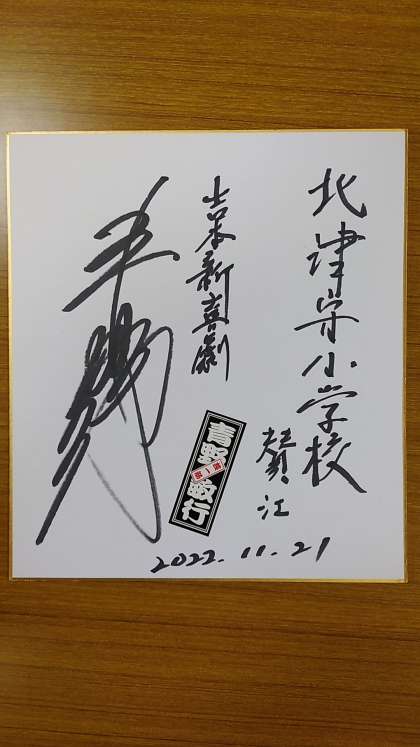 北津守小学校
賛江
吉本新喜劇
青野敏行
2022.11.21